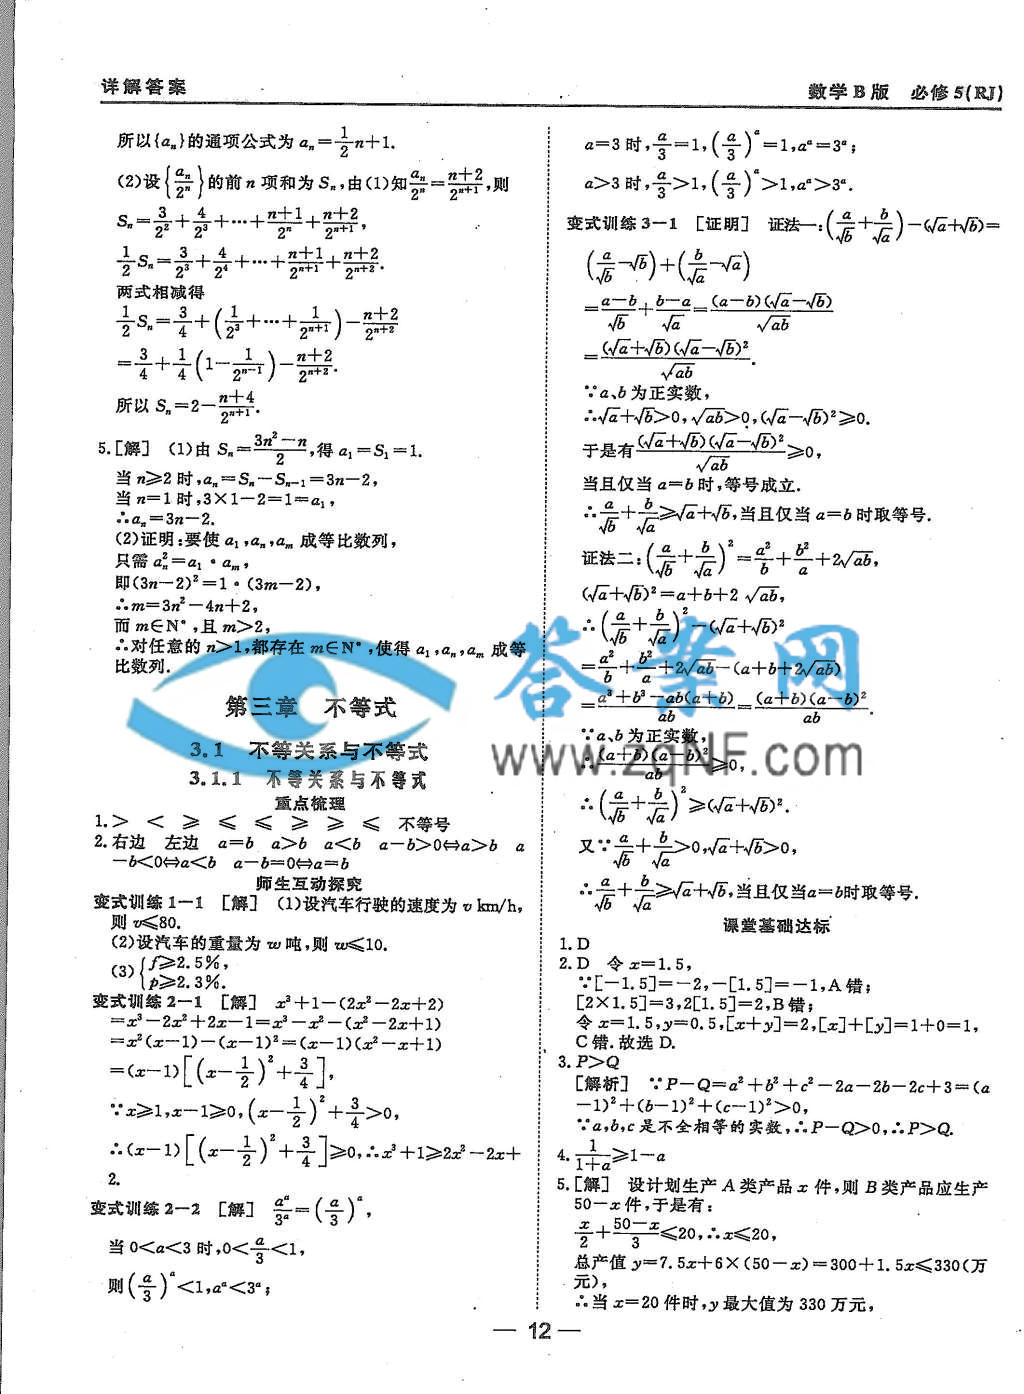 详解答案
数学B版 必修5(RJ)
所以{aₙ}的通项公式为 aₙ=1/2 n+1.
(2)设{aₙ/2ⁿ}的前 n 项和为 Sₙ,由(1)知 aₙ/2ⁿ=(n+2)/2ⁿ⁺¹,则
Sₙ=3/2²+4/2³+⋯+(n+1)/2ⁿ+(n+2)/2ⁿ⁺¹,
1/2 Sₙ=3/2³+4/2⁴+⋯+(n+1)/2ⁿ⁺¹+(n+2)/2ⁿ⁺².
两式相减得
1/2 Sₙ=3/4+(1/2³+⋯+1/2ⁿ⁺¹)-(n+2)/2ⁿ⁺²
=3/4+1/4(1-1/2ⁿ⁻¹)-(n+2)/2ⁿ⁺².
所以 Sₙ=2-(n+4)/2ⁿ⁺¹.
5.[解] (1)由 Sₙ=(3n²-n)/2,得 a₁=S₁=1.
当 n≥2 时,aₙ=Sₙ-Sₙ₋₁=3n-2,
当 n=1 时,3×1-2=1=a₁,
∴aₙ=3n-2.
(2)证明:要使 a₁,aₙ,aₘ 成等比数列,
只需 aₙ²=a₁·aₘ,
即(3n-2)²=1·(3m-2),
∴m=3n²-4n+2,
而 m∈N*,且 m>2,
∴对任意的 n>1,都存在 m∈N*,使得 a₁,aₙ,aₘ 成等
比数列.
第三章 不等式
3.1 不等关系与不等式
3.1.1 不等关系与不等式
重点梳理
1.> < ≥ ≤ ≤ ≥ ≥ ≤ 不等号
2.右边 左边 a=b a>b a<b a-b>0⇔a>b a
-b<0⇔a<b a-b=0⇔a=b
师生互动探究
变式训练1-1 [解] (1)设汽车行驶的速度为 v km/h,
则 v≤80.
(2)设汽车的重量为 w 吨,则 w≤10.
(3){f≥2.5%,
p≥2.3%.
变式训练2-1 [解] x³+1-(2x²-2x+2)
=x³-2x²+2x-1=x³-x²-(x²-2x+1)
=x²(x-1)-(x-1)²=(x-1)(x²-x+1)
=(x-1)[(x-1/2)²+3/4],
∵x≥1,x-1≥0,(x-1/2)²+3/4>0,
∴(x-1)[(x-1/2)²+3/4]≥0,∴x³+1≥2x²-2x+
2.
变式训练2-2 [解] aᵃ/3ᵃ=(a/3)ᵃ,
当 0<a<3 时,0<a/3<1,
则(a/3)ᵃ<1,aᵃ<3ᵃ;
a=3 时,a/3=1,(a/3)ᵃ=1,aᵃ=3ᵃ;
a>3 时,a/3>1,(a/3)ᵃ>1,aᵃ>3ᵃ.
变式训练3-1 [证明] 证法一:(a/√b+b/√a)-(√a+√b)=
(a/√b-√b)+(b/√a-√a)
=(a-b)/√b+(b-a)/√a=(a-b)(√a-√b)/√ab
=(√a+√b)(√a-√b)²/√ab.
∵a、b 为正实数,
∴√a+√b>0,√ab>0,(√a-√b)²≥0.
于是有(√a+√b)(√a-√b)²/√ab≥0,
当且仅当 a=b 时,等号成立.
∴a/√b+b/√a≥√a+√b,当且仅当 a=b 时取等号.
证法二:(a/√b+b/√a)²=a²/b+b²/a+2√ab,
(√a+√b)²=a+b+2√ab,
∴(a/√b+b/√a)²-(√a+√b)²
=a²/b+b²/a+2√ab-(a+b+2√ab)
=(a³+b³-ab(a+b))/ab=(a+b)(a-b)²/ab.
∵a、b为正实数,
∴(a+b)(a-b)²/ab≥0,
∴(a/√b+b/√a)²≥(√a+√b)².
又∵a/√b+b/√a>0,√a+√b>0,
∴a/√b+b/√a≥√a+√b,当且仅当a=b时取等号.
课堂基础达标
1.D
2.D 令 x=1.5,
∵[-1.5]=-2,-[1.5]=-1,A错;
[2×1.5]=3,2[1.5]=2,B错;
令 x=1.5,y=0.5,[x+y]=2,[x]+[y]=1+0=1,
C错.故选D.
3.P>Q
[解析] ∵P-Q=a²+b²+c²-2a-2b-2c+3=(a
-1)²+(b-1)²+(c-1)²>0,
∵a,b,c是不全相等的实数,∴P-Q>0,∴P>Q.
4.1/(1+a)≥1-a
5.[解] 设计划生产 A 类产品 x 件,则 B 类产品应生产
50-x 件,于是有:
x/2+(50-x)/3≤20,∴x≤20,
总产值 y=7.5x+6×(50-x)=300+1.5x≤330(万
元),
∴当 x=20 件时,y 最大值为 330 万元,
— 12 —
答案网
www.zqNF.com